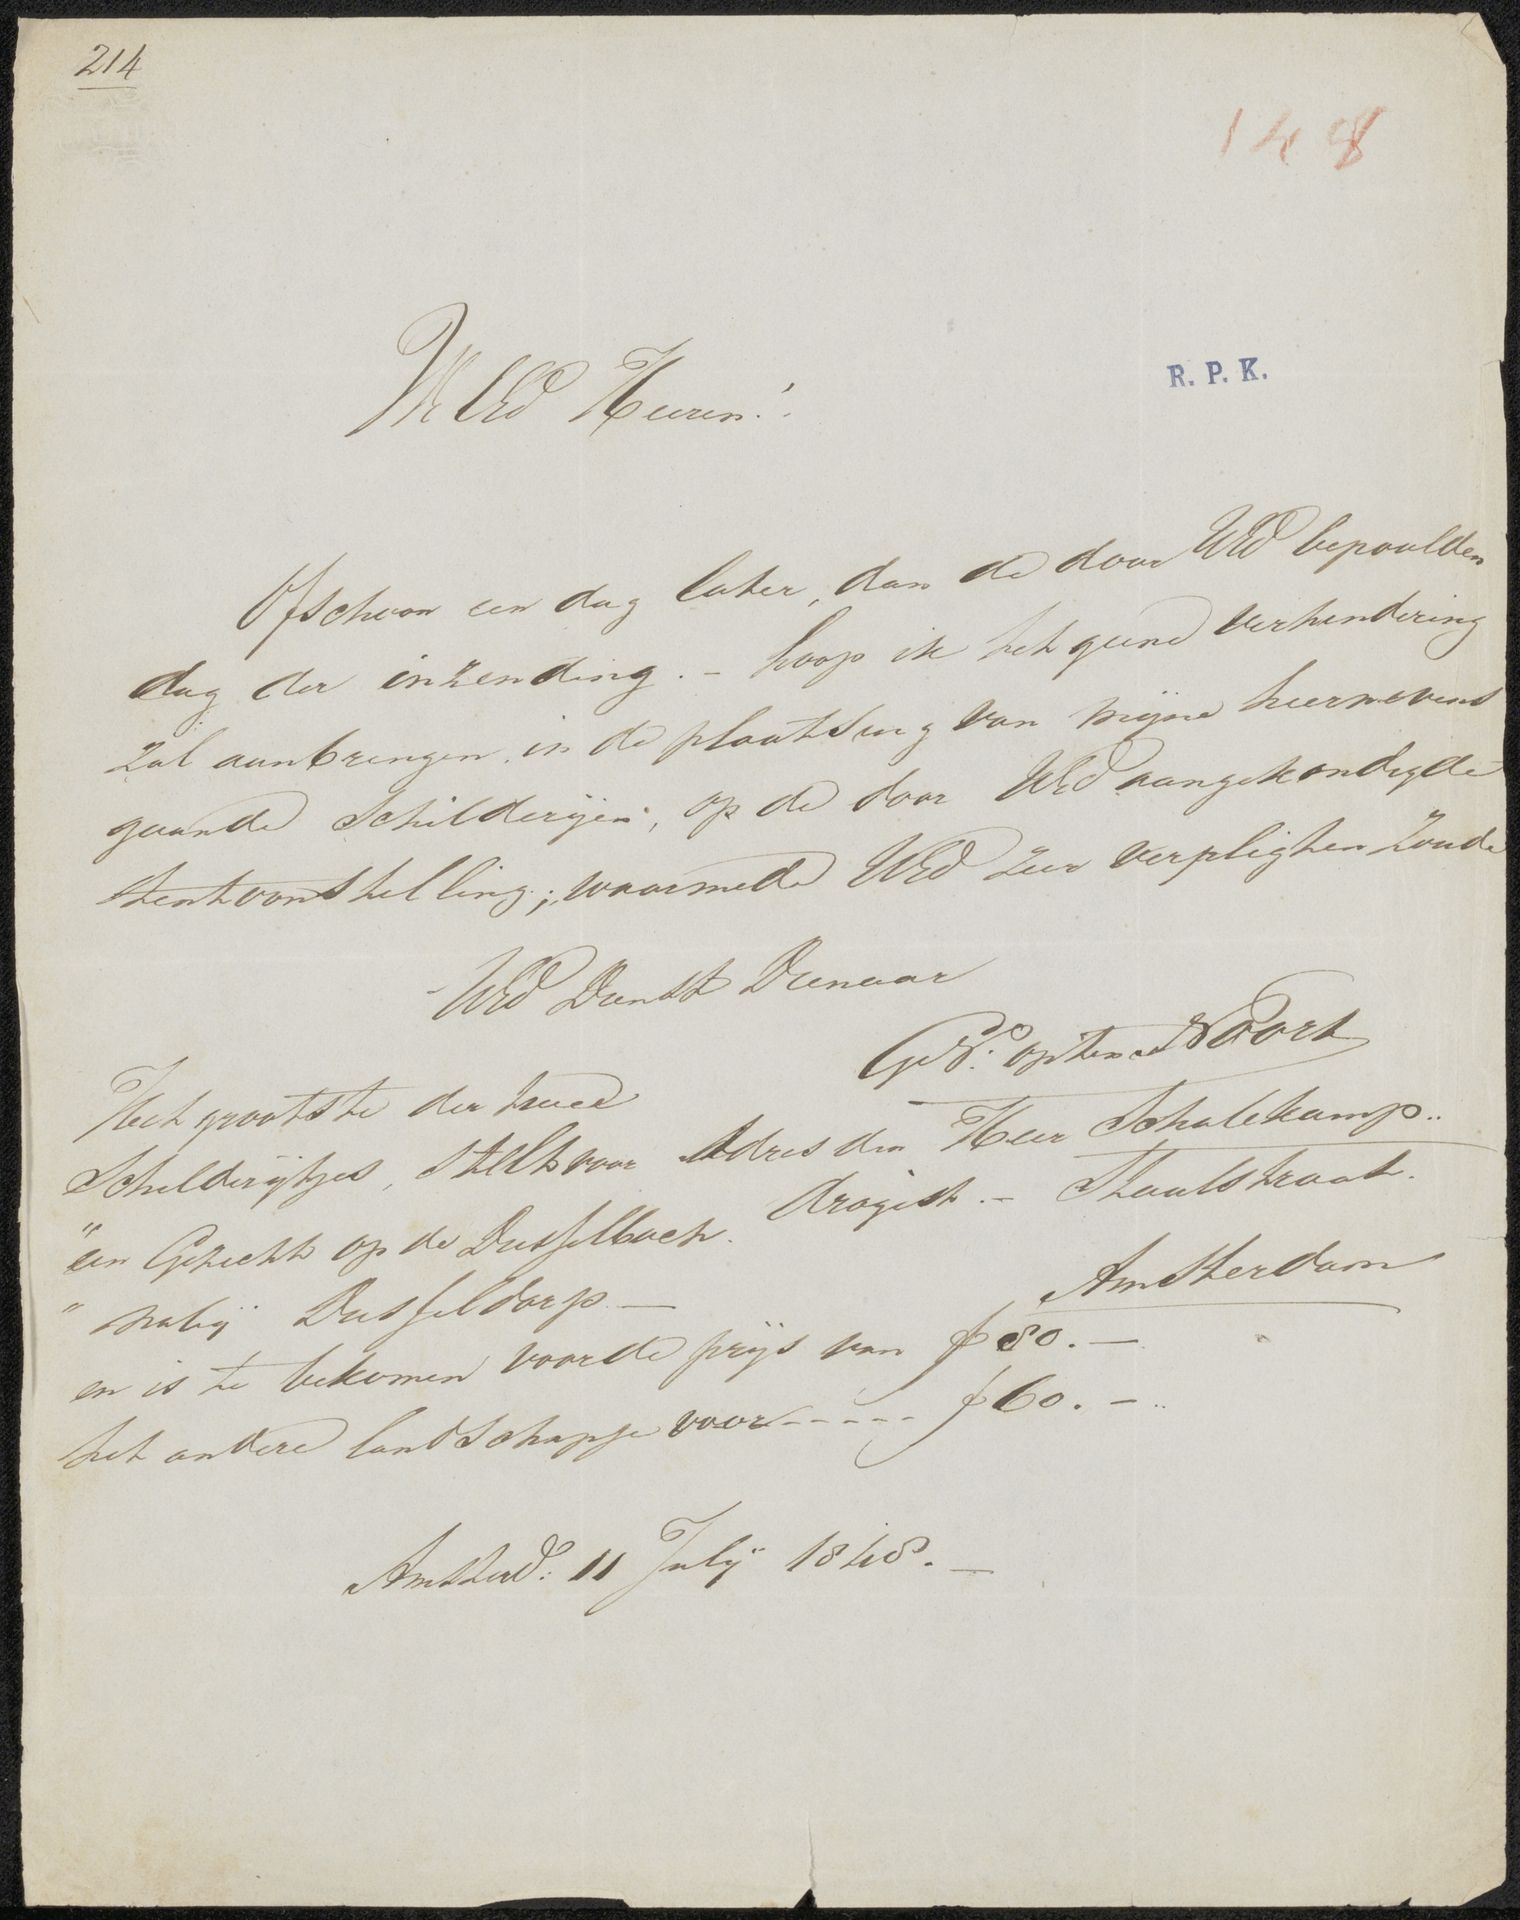 214
148
R. P. K.
WelEd Heeren!
Ofschoon een dag later, dan de door UEd bepaalden
dag der inzending. – hoop ik het geene verhindering
zal aanbrengen, in de plaatsing van mijne hiernevens
gaande Schilderijen, op de door UEd aangekondigde
tentoonstelling; waarmede UEd zeer verpligten zoude
UEd Dienstv Dienaar
op ten Noort
Het grootste der twee
Schilderijtjes, stelt voor
"een Gezicht op de Dusselbach.
" nabij Dusseldorp. —
en is te bekomen voor de prijs van ƒ 80. —
het andere landschapje voor - - - - - ƒ 60. —
Adres den Heer Schalekamp..
drogist. – Staalstraat.
Amsterdam
Amsterd: 11 Julij 1848. —